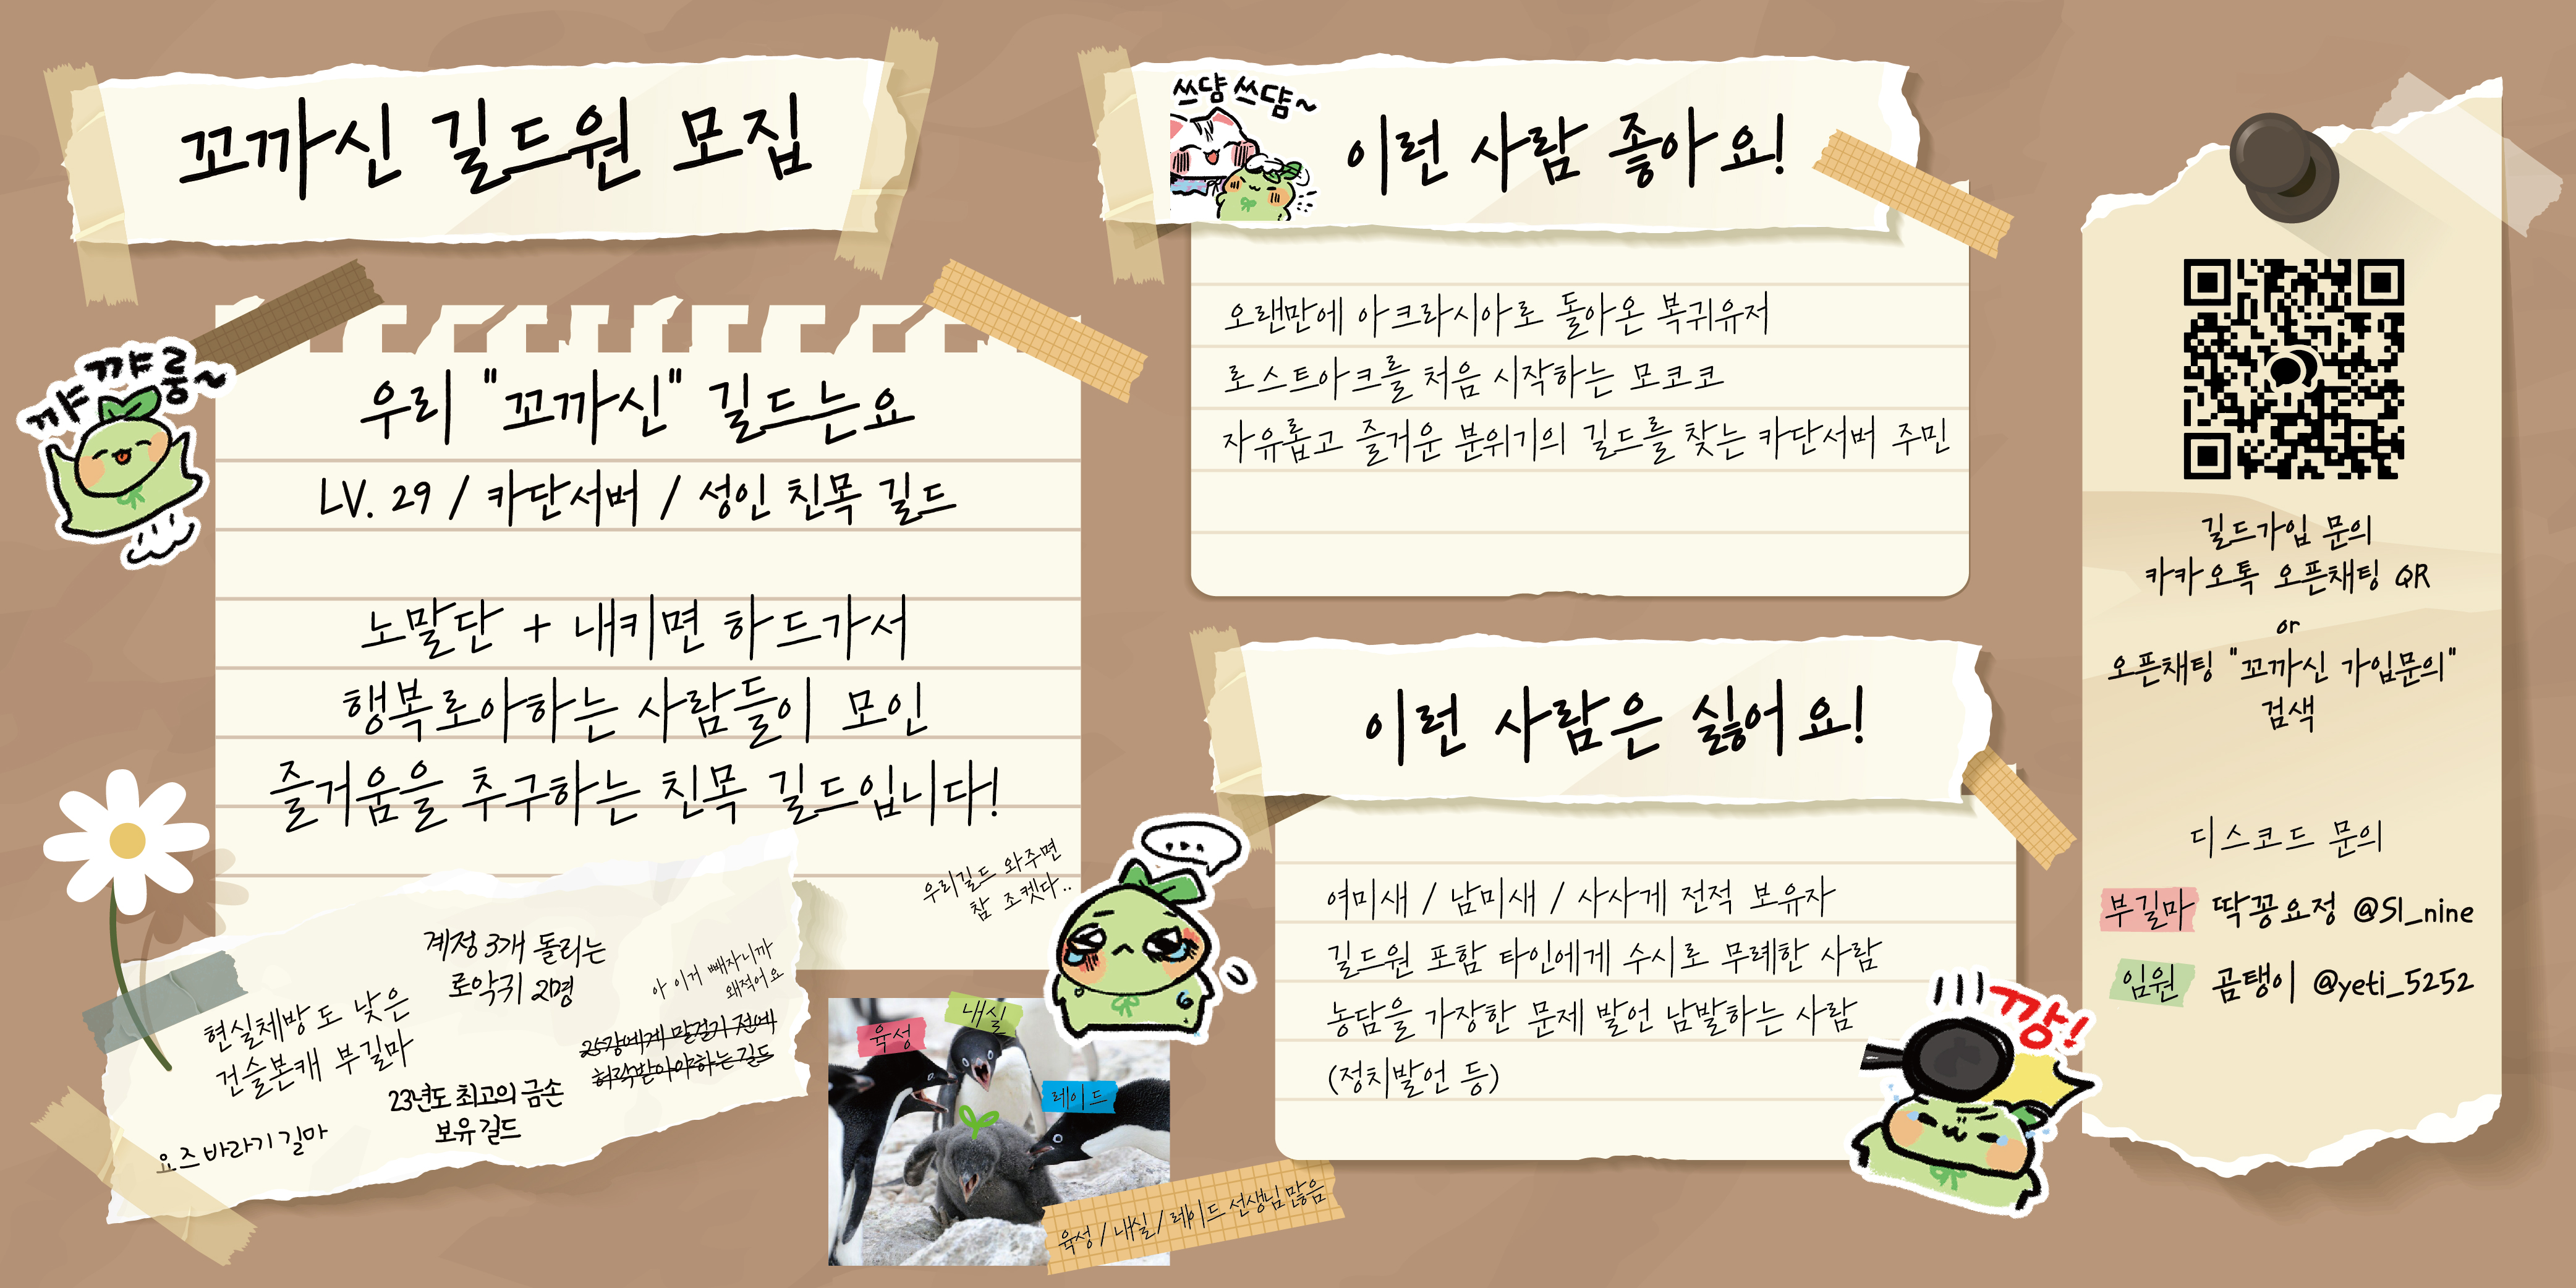 꼬까신 길드원 모집
꺄꺄룽~
우리 "꼬까신" 길드는요
LV. 29 / 카단서버 / 성인 친목 길드
노말단 + 내키면 하드가서
행복로아하는 사람들이 모인
즐거움을 추구하는 친목 길드입니다!
우리길드 와주면
참 조켓다..
계정 3개 돌리는
로악귀 2명
아 이거 빼자니까
왜적어요
현실체방도 낮은
건슬본캐 부길마
25강에게 말걸기 전에
허락받아야하는 길드
23년도 최고의 금손
보유 길드
요즈바라기 길마
...
육성
내실
레이드
육성 / 내실 / 레이드 선생님 많음
쓰담 쓰담~
이런 사람 좋아요!
오랜만에 아크라시아로 돌아온 복귀유저
로스트아크를 처음 시작하는 모코코
자유롭고 즐거운 분위기의 길드를 찾는 카단서버 주민
이런 사람은 싫어요!
여미새 / 남미새 / 사사게 전적 보유자
길드원 포함 타인에게 수시로 무례한 사람
농담을 가장한 문제 발언 남발하는 사람
(정치발언 등)
깡!
길드가입 문의
카카오톡 오픈채팅 QR
or
오픈채팅 "꼬까신 가입문의"
검색
디스코드 문의
부길마 딱꽁요정 @Sl_nine
임원 곰탱이 @yeti_5252